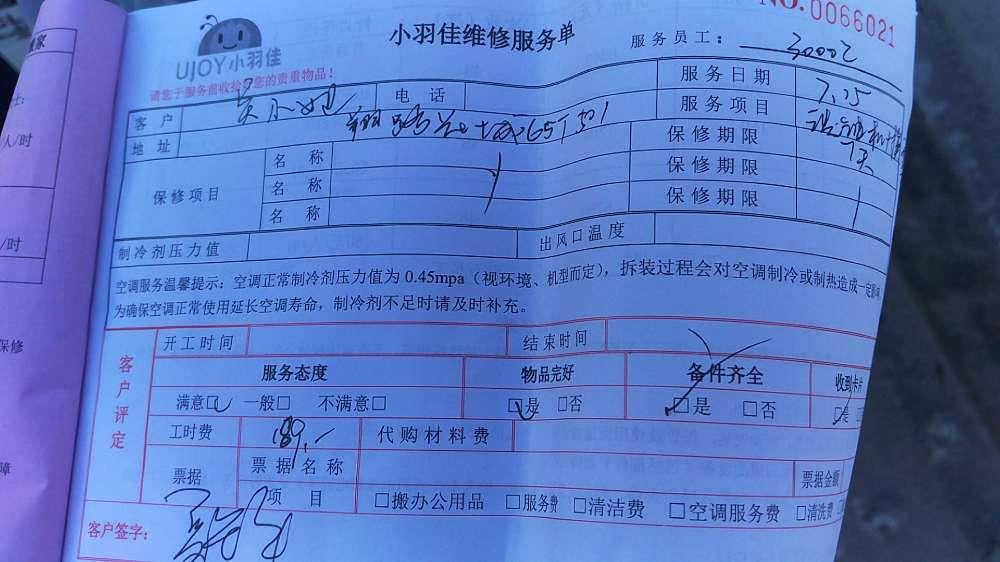 NO. 0066021
UJOY小羽佳
小羽佳维修服务单
服务员工：
请您于服务前收拾好您的贵重物品！
客户 电话 服务日期 7.25
地址 服务项目
保修项目 名称 保修期限 7天
名称 保修期限
名称 保修期限
制冷剂压力值 出风口温度
空调服务温馨提示：空调正常制冷剂压力值为 0.45mpa（视环境、机型而定），拆装过程会对空调制冷或制热造成一定影响
为确保空调正常使用延长空调寿命，制冷剂不足时请及时补充。
客户评定
开工时间 结束时间
服务态度 物品完好 备件齐全 收到卡片
满意□ 一般□ 不满意□ □是 □否 □是 □否 □是
工时费 189.- 代购材料费
票据 票据名称 票据金额
项目 □搬办公用品 □服务费 □清洁费 □空调服务费 □清洗费
客户签字：
人/时
/时
保修
障